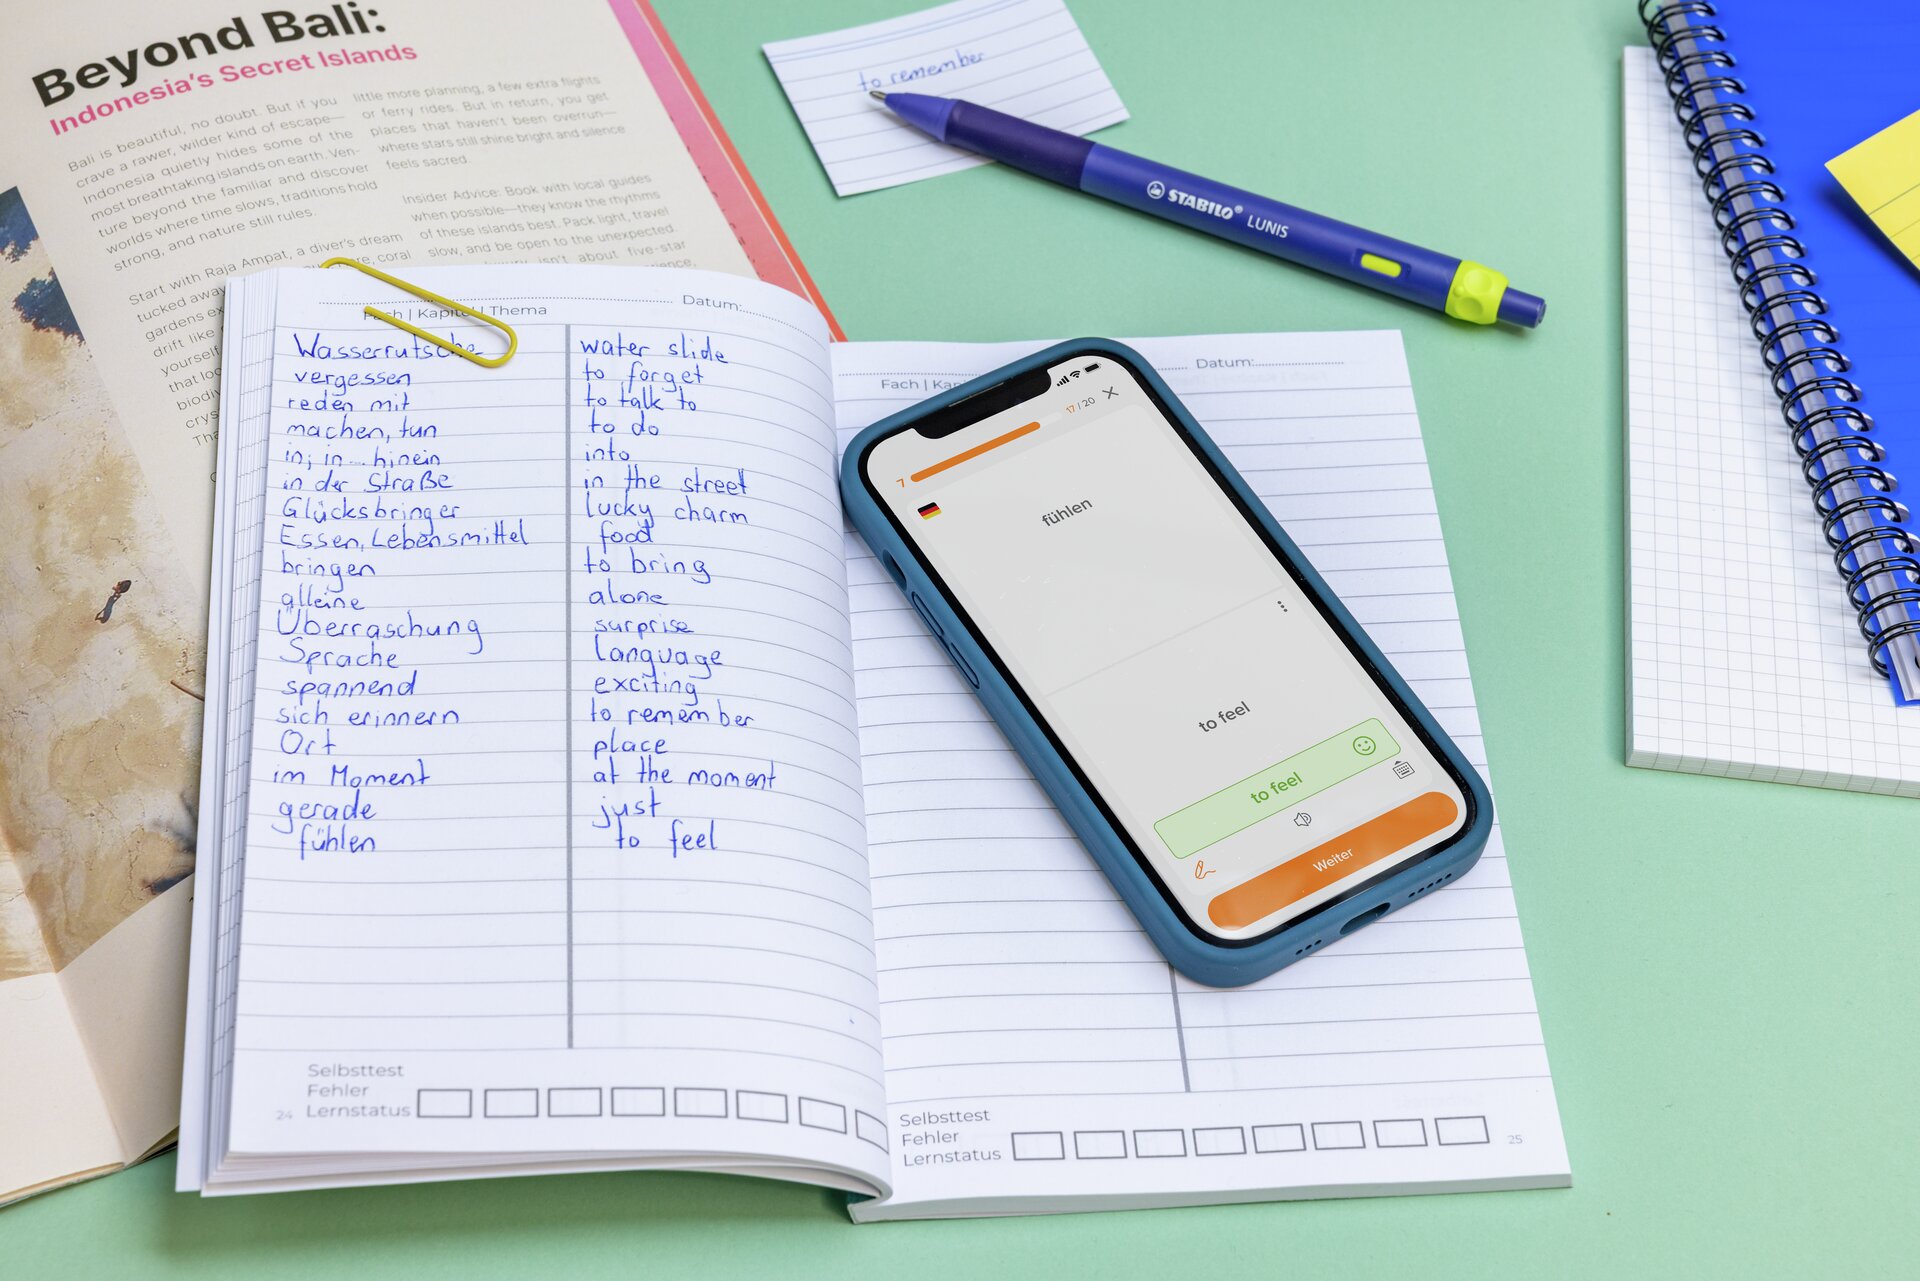 Beyond Bali:
Indonesia's Secret Islands
Bali is beautiful, no doubt. But if you
crave a rawer, wilder kind of escape—
Indonesia quietly hides some of the
most breathtaking islands on earth. Ven-
ture beyond the familiar and discover
worlds where time slows, traditions hold
strong, and nature still rules.
Start with Raja Ampat, a diver's dream
tucked away
coral
gardens
drift like
yourself
that
little more planning, a few extra flights
or ferry rides. But in return, you get
places that haven't been overrun—
where stars still shine bright and silence
feels sacred.
Insider Advice: Book with local guides
when possible—they know the rhythms
of these islands best. Pack light, travel
slow, and be open to the unexpected.
isn't about five-star
to remember
STABILO® LUNIS
Fach | Kapitel | Thema
Datum:
Wasserrutsche water slide
vergessen to forget
reden mit to talk to
machen, tun to do
in; in...hinein into
in der Straße in the street
Glücksbringer lucky charm
Essen, Lebensmittel food
bringen to bring
alleine alone
Überraschung surprise
Sprache language
spannend exciting
sich erinnern to remember
Ort place
im Moment at the moment
gerade just
fühlen to feel
Selbsttest
Fehler
24 Lernstatus
Fach |
Datum:
17/20
7
fühlen
to feel
to feel
Weiter
Selbsttest
Fehler
Lernstatus
25